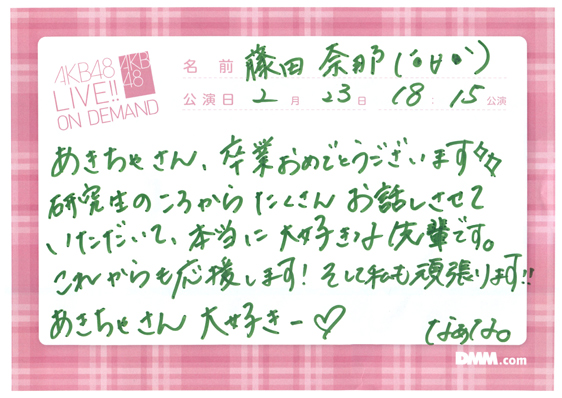 AKB48
LIVE!!
ON DEMAND
AKB
48
名 前 藤田 奈那 (´•ㅂ•`)
公演日 2 月 23 日 18 : 15 公演
あきちゃさん、卒業おめでとうございます
研究生のころからたくさん お話しさせて
いただいて、本当に大好きな先輩です。
これからも応援します! そして私も頑張ります!!
あきちゃさん 大好きー♡
なぁな。
DMM.com